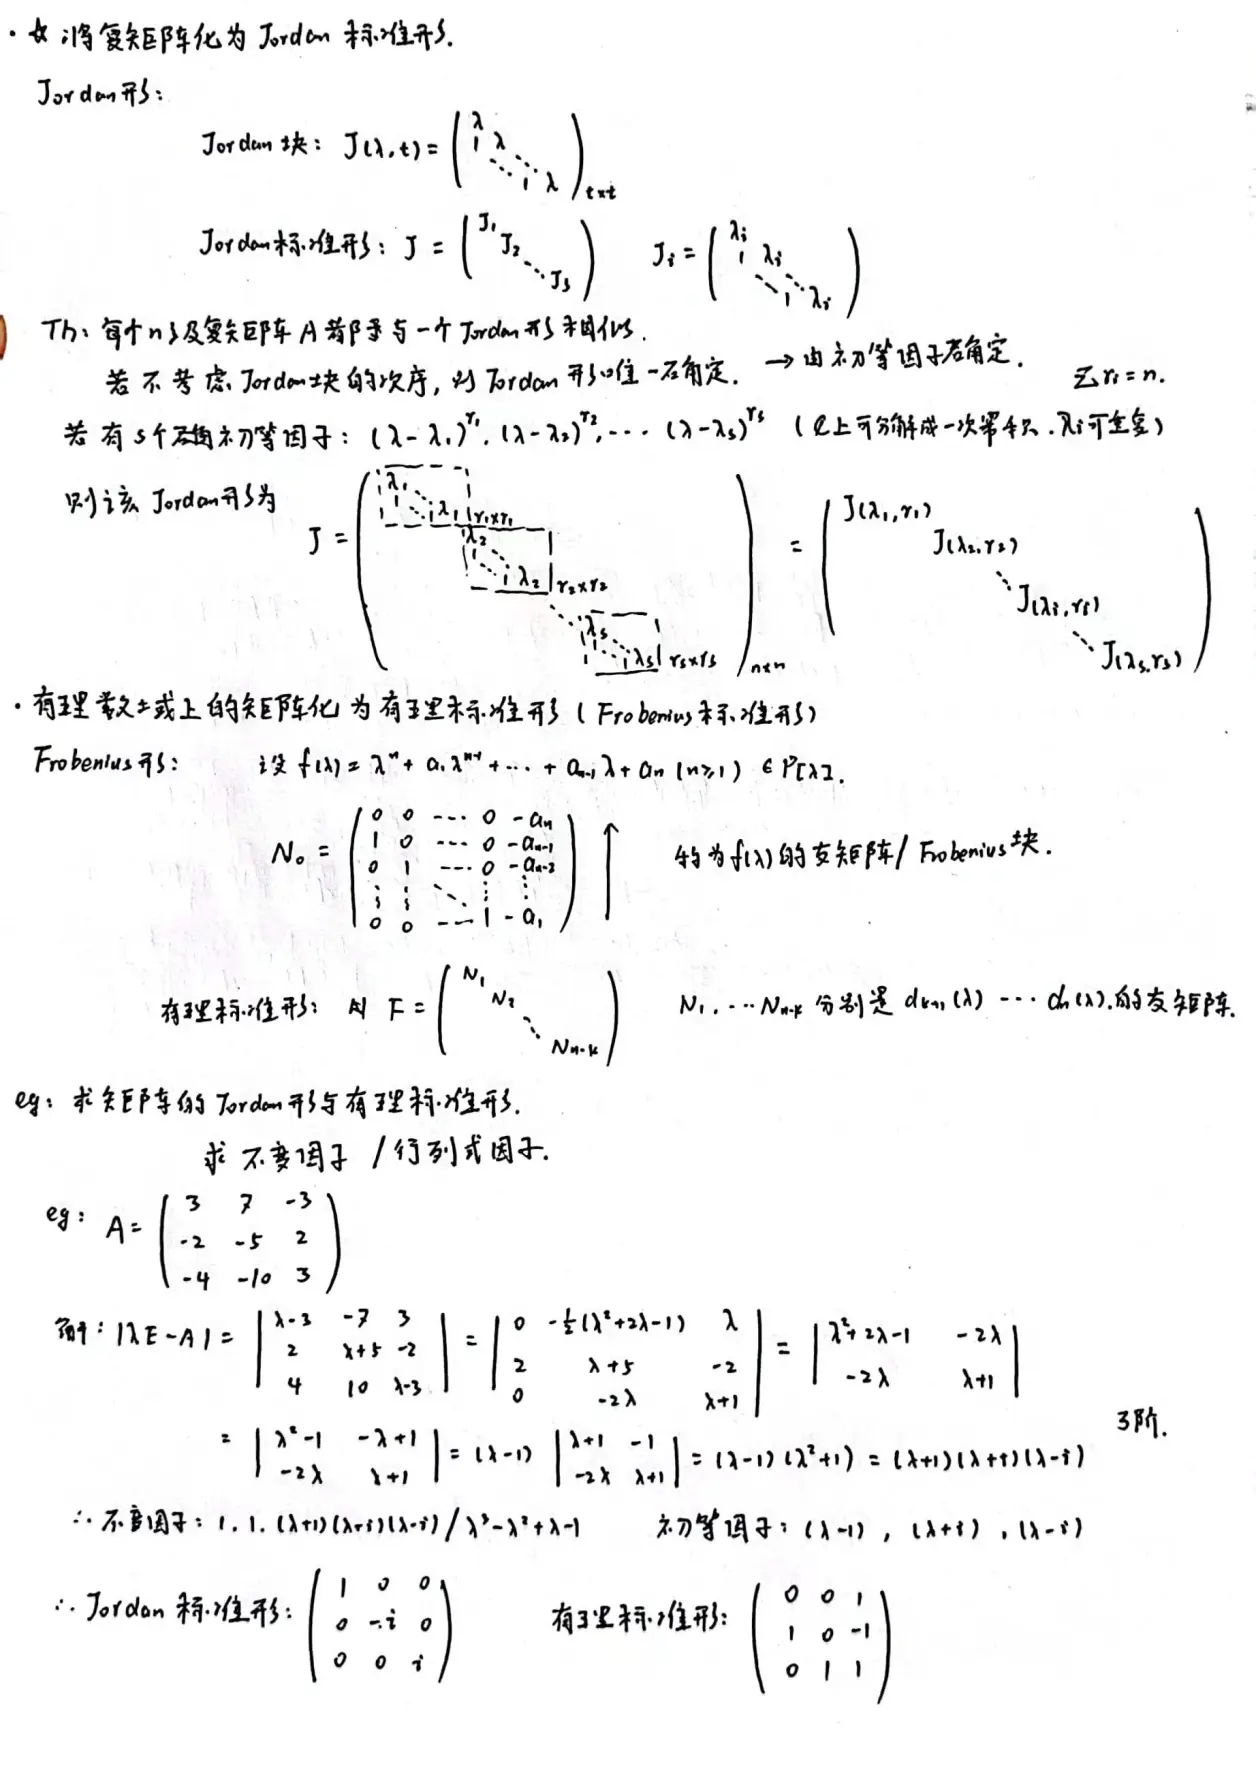 · ☆ 将复矩阵化为 Jordan 标准形.
Jordan形:
Jordan 块: J(λ,t) = ( λ 1 λ ⋱ ⋱ 1 λ )t×t
Jordan标准形: J = ( J₁ J₂ ⋱ Js ) Ji = ( λi 1 λi ⋱ ⋱ 1 λi )
Th: 每个n级复矩阵 A 都与一个 Jordan 形相似.
若不考虑 Jordan块的次序, 则 Jordan 形唯一确定. → 由初等因子确定. Σri = n.
若有 s 个 初等因子: (λ-λ₁)^r₁, (λ-λ₂)^r₂, ··· (λ-λs)^rs (C上可分解成一次幂积. λi可重复)
则该 Jordan形为 J = ( λ₁ 1 ⋱ ⋱ 1 λ₁ r₁×r₁ λ₂ 1 ⋱ ⋱ 1 λ₂ r₂×r₂ ⋱ λs 1 ⋱ ⋱ 1 λs rs×rs )n×n = ( J(λ₁,r₁) J(λ₂,r₂) ⋱ J(λi,ri) ⋱ J(λs,rs) )
· 有理数域上的矩阵化为有理标准形 ( Frobenius标准形)
Frobenius形: 设 f(λ) = λⁿ + a₁λⁿ⁻¹ + ··· + aₙ₋₁λ + aₙ (n≥1) ∈ P[λ].
N₀ = ( 0 0 ··· 0 -aₙ
1 0 ··· 0 -aₙ₋₁
0 1 ··· 0 -aₙ₋₂
⋮ ⋮ ⋱ ⋮ ⋮
0 0 ··· 1 -a₁ ) ↑ 称为f(λ)的友矩阵/ Frobenius块.
有理标准形: 则 F = ( N₁ N₂ ⋱ Nₙ₋ₖ ) N₁, ··· Nₙ₋ₖ 分别是 dₖ₊₁(λ) ··· dₙ(λ).的友矩阵.
eg: 求矩阵的 Jordan 形与有理标准形.
求 不变因子 / 行列式因子.
eg: A = ( 3 7 -3
-2 -5 2
-4 -10 3 )
解: |λE-A| = | λ-3 -7 3 ; 2 λ+5 -2 ; 4 10 λ-3 | = | 0 -½(λ²+2λ-1) λ ; 2 λ+5 -2 ; 0 -2λ λ+1 | = | λ²+2λ-1 -2λ ; -2λ λ+1 |
= | λ²-1 -λ+1 ; -2λ λ+1 | = (λ-1) | λ+1 -1 ; -2λ λ+1 | = (λ-1)(λ²+1) = (λ+1)(λ+i)(λ-i) 3阶.
∴ 不变因子: 1. 1. (λ+1)(λ+i)(λ-i) / λ³-λ²+λ-1 初等因子: (λ-1) , (λ+i) , (λ-i)
∴ Jordan 标准形: ( 1 0 0
0 -i 0
0 0 i ) 有理标准形: ( 0 0 1
1 0 -1
0 1 1 )